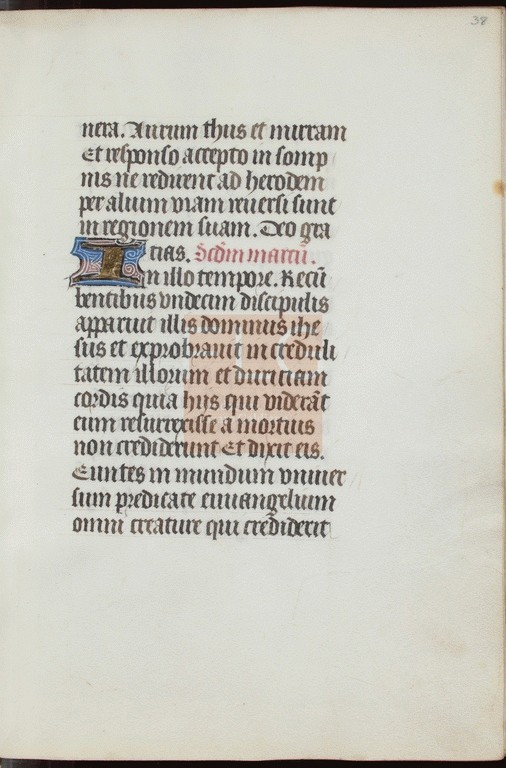 38
nera. Aurum thus et mirram
Et responso accepto in somp
nis ne redirent ad herodem
per aliam viam reuersi sunt
in regionem suam. Deo gra
tias. Scdm marcū.
In illo tempore. Recū
bentibus vndecim discipulis
apparuit illis dominus ihe
sus et exprobrauit increduli
tatem illorum et duriciam
cordis quia hiis qui viderāt
eum resurrexisse a mortuis
non crediderunt Et dixit eis.
Euntes in mundum vniuer
sum predicate euuangelium
omni creature qui crediderit